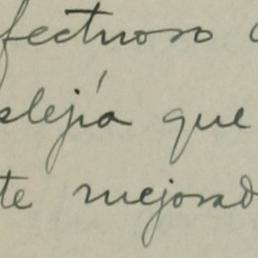 fectuoso
plejía que
te mejorad